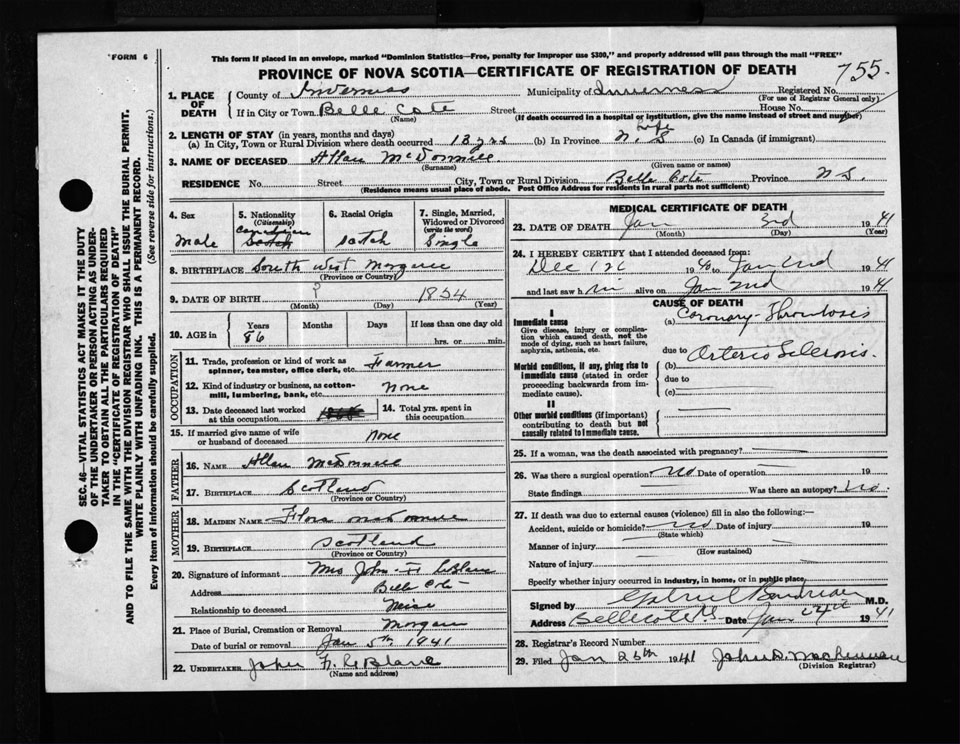 FORM 6
This form if placed in an envelope, marked "Dominion Statistics—Free, penalty for improper use $300," and properly addressed will pass through the mail "FREE"
PROVINCE OF NOVA SCOTIA—CERTIFICATE OF REGISTRATION OF DEATH
755.
SEC. 46—VITAL STATISTICS ACT MAKES IT THE DUTY
OF THE UNDERTAKER OR PERSON ACTING AS UNDER-
TAKER TO OBTAIN ALL THE PARTICULARS REQUIRED
IN THE "CERTIFICATE OF REGISTRATION OF DEATH"
AND TO FILE THE SAME WITH THE DIVISION REGISTRAR WHO SHALL ISSUE THE BURIAL PERMIT.
WRITE PLAINLY WITH UNFADING INK. THIS IS A PERMANENT RECORD.
Every item of information should be carefully supplied. (See reverse side for instructions.)
1. PLACE OF DEATH
County of Inverness Municipality of Inverness Registered No.
(For use of Registrar General only)
If in City or Town Belle Cote Street House No.
(Name) (If death occurred in a hospital or institution, give the name instead of street and number)
2. LENGTH OF STAY (in years, months and days)
(a) In City, Town or Rural Division where death occurred 13 yrs (b) In Province Life N.S (c) In Canada (if immigrant)
3. NAME OF DECEASED Allan McDonnell
(Surname) (Given name or names)
RESIDENCE No. Street City, Town or Rural Division Belle Cote Province N.S.
(Residence means usual place of abode. Post Office Address for residents in rural parts not sufficient)
4. Sex
Male
5. Nationality
(Citizenship)
Canadian
Scotch
6. Racial Origin
Scotch
7. Single, Married,
Widowed or Divorced
(write the word)
Single
8. BIRTHPLACE South West Margaree
(Province or Country)
9. DATE OF BIRTH ? 1854
(Month) (Day) (Year)
10. AGE in
Years Months Days If less than one day old
86 hrs. or min.
OCCUPATION
11. Trade, profession or kind of work as
spinner, teamster, office clerk, etc. Farmer
12. Kind of industry or business, as cotton-
mill, lumbering, bank, etc. None
13. Date deceased last worked
at this occupation
14. Total yrs. spent in
this occupation
15. If married give name of wife
or husband of deceased None
FATHER
16. NAME Allan McDonnell
17. BIRTHPLACE Scotland
(Province or Country)
MOTHER
18. MAIDEN NAME Flora McDonnell
19. BIRTHPLACE Scotland
(Province or Country)
20. Signature of informant Mrs John H LeBlanc
Address Belle Cote
Relationship to deceased Neice
21. Place of Burial, Cremation or Removal Margaree
Date of burial or removal Jan 5th 1941
22. UNDERTAKER John H. LeBlanc
(Name and address)
MEDICAL CERTIFICATE OF DEATH
23. DATE OF DEATH Jan 3rd 1941
(Month) (Day) (Year)
24. I HEREBY CERTIFY that I attended deceased from:
Dec 1940 to Jan 2nd 1941
and last saw him alive on Jan 2nd 1941
CAUSE OF DEATH
I
Immediate cause
Give disease, injury or complica-
tion which caused death, not the
mode of dying, such as heart failure,
asphyxia, asthenia, etc.
(a) Coronary Thrombosis
due to Arterio Sclerosis.
Morbid conditions, if any, giving rise to
immediate cause (stated in order
proceeding backwards from im-
mediate cause).
(b)
due to
(c)
II
Other morbid conditions (if important)
contributing to death but not
causally related to immediate cause.
25. If a woman, was the death associated with pregnancy?
26. Was there a surgical operation? No Date of operation 19
State findings Was there an autopsy? No.
27. If death was due to external causes (violence) fill in also the following:—
Accident, suicide or homicide? No Date of injury 19
(State which)
Manner of injury
(How sustained)
Nature of injury
Specify whether injury occurred in industry, in home, or in public place.
Signed by Gabriel Boudreau M.D.
Address Belle Cote N.S Date Jan 1941
28. Registrar's Record Number
29. Filed Jan 25th 1941 John D. MacLennan
(Division Registrar)